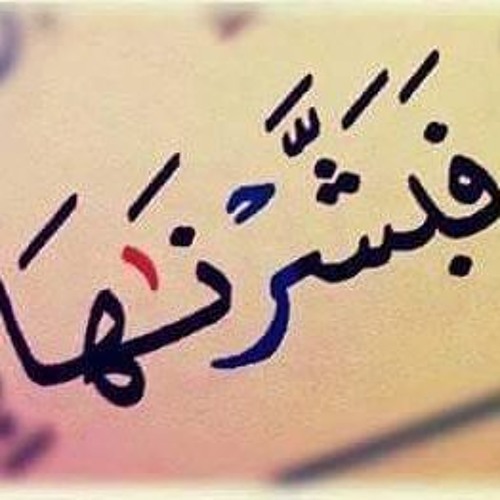 فَبَشَّرْنَٰهَا